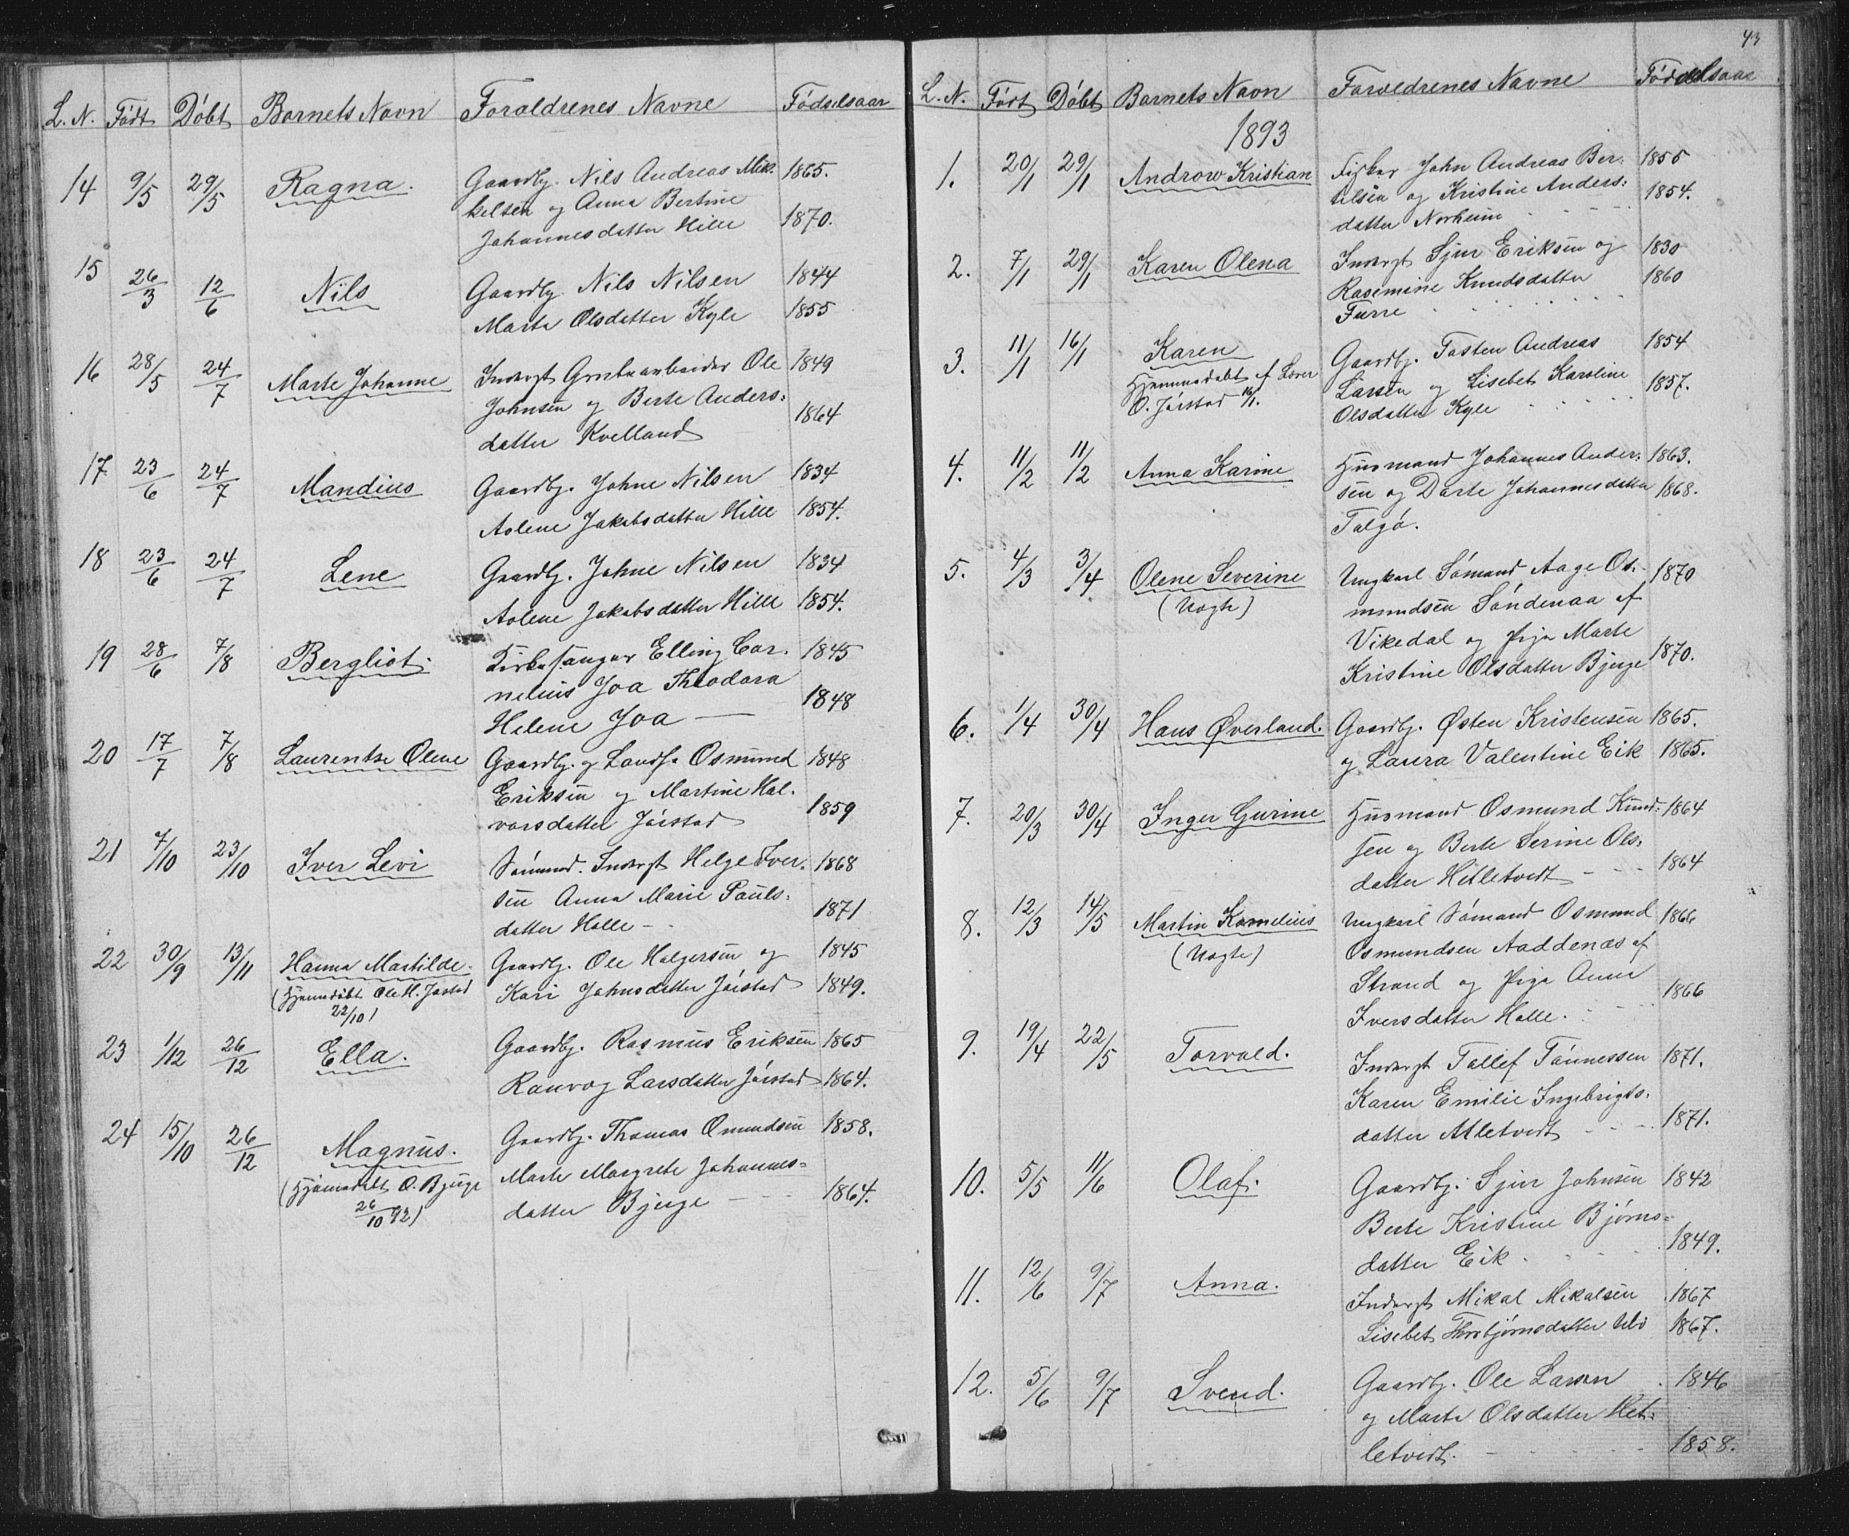 L. N. Født Døbt Barnets Navn Foraldrenes Navne Fødselsaar
14 9/5 29/5 Ragna. Gaardbg. Nils Andreas Mik- 1865.
kelsen og Anna Bertine
Johannesdatter Hille 1870.
15 26/3 12/6 Nils Gaardbg Nils Nilsen 1844
Marta Olsdatter Kyle 1855
16 28/5 24/7 Marte Johanne Inderst Grubearbeider Ole 1849
Johnsen og Berte Anders-
datter Kvelland 1864
17 23/6 24/7 Mandius Gaardbg. Johne Nilsen 1834
Aolene Jakobsdatter Hille 1854.
18 23/6 24/7 Lene Gaardbg. Johne Nilsen 1834
Aolene Jakobsdatter Hille 1854.
19 28/6 7/8 Bergliot. Kirkesanger Elling Cor- 1845
nelius Joa Theodora
Helene Joa — 1848
20 17/7 7/8 Laurentse Olene Gaardbg. og Landh. Osmund 1848
Eriksen og Martine Hal-
vorsdatter Jørstad 1859
21 7/10 23/10 Iver Levi Sømand. Inderst Helge Iver- 1868
sen Anna Marie Pouls-
datter Halle - 1871
22 30/9 13/11 Hanna Mastilde. Gaardbg. Ole Helgersen og 1845
(Hjemmdøbt Ole H. Jøstad Kari Johnsdatter Jørstad 1849.
22/10)
23 1/12 26/12 Ella. Gaardbg. Rasmus Eriksen 1865
Ranvog Larsdatter Jørstad 1864.
24 15/10 26/12 Magnus. Gaardbg. Thomas Omundsen 1858.
(Hjemmedøbt O. Bjerge Marte Margrete Johannes-
26/10 92) datter Bjerge — 1864.
43
L. N. Født Døbt Barnets Navn Forældrenes Navne Fødselsaar
1893
1. 20/1 29/1 Androw Kristian Fisker John Andreas Ber- 1855
tilsen og Kristine Anders- 1854.
datter Norheim
2. 7/1 29/1 Karen Olena Inderst Sjur Eriksen og 1830
Rasemine Knudsdatter 1860
Furre
3. 11/1 16/1 Karen Gaardbg. Tosten Andreas 1854
Hjemmedøbt af Lærer Larsen og Lisebet Karoline 1857.
O. Jørstad 16/1. Olsdatter Kyle
4. 11/2 11/2 Anna Karine Husmand Johannes Ander- 1863.
sen og Dorte Johannesdatter 1868.
Talgø.
5. 4/3 3/4 Olene Severine Ungkarl Sømand Aage Os- 1870
(Uægte) mundsen Søndenaa af
Vikedal og Pige Marte
Kristine Olsdatter Bjerge 1870.
6. 1/4 30/4 Hans Øverland. Gaardbg. Østen Kristensen 1865.
og Laura Valentine Eik 1865.
7. 20/3 30/4 Inger Gurine Husmand Osmund Knud- 1864
sen og Berte Serine Ols-
datter Hetletvedt - - - 1864
8. 12/3 14/5 Martin Kornelius Ungkarl Sømand Osmund 1866
(Uægte) Osmundsen Aaddenæs af
Strand og Pige Anna 1866
Iversdatter Halle.
9. 19/4 22/5 Torvald. Inderst Tollef Tønnessen 1871.
Karen Emilie Ingebrigts-
datter Alletvedt - - - 1871.
10. 5/5 11/6 Olaf. Gaardbg. Sjur Johnsen 1842
Berte Kristine Bjørns-
datter Eik. 1849.
11. 12/6 9/7 Anna. Inderst Mikal Mikalsen 1867
Lisebet Thorbjørnsdatter Ubø 1867.
12. 5/6 9/7 Svend. Gaardbg. Ole Larsen 1846
og Marta Olsdatter Het-
letvedt. 1858.